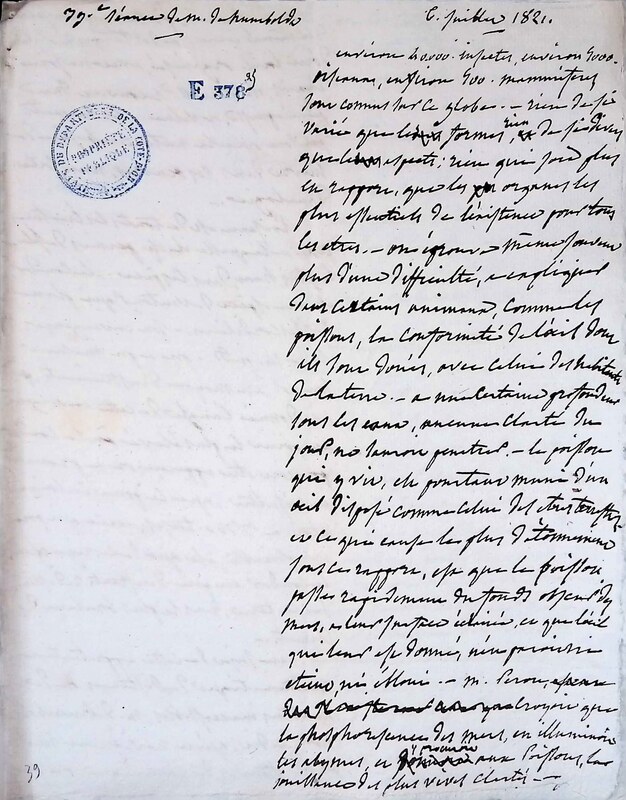 39e Séance de M. de humboldt
6. juillet 1821.
E 378 35
ARCHIVES DU DEPARTEMENT DE LA COTE-D'OR
PROPRIÉTÉ PUBLIQUE
environ 40.000. insectes, environ 4000.
oiseaux, environ 500. mammiferes
sont connus sur ce globe. — rien de si
varié que les formes, rien de si divers
que les aspects; rien qui soit plus
en rapport, que les organes les
plus essentiels de l'existence pour tous
les etres. — on éprouve même souvent
plus d'une difficulté, a expliquer
dans certains animaux, comme les
poissons, la conformité de l'œil dont
ils sont doués, avec celui des habitants
de la terre. — a une certaine profondeur
sous les eaux, aucune clarté du
jour, ne sauroit penetrer. — le poisson
qui y vit, est pourtant muni d'un
œil disposé comme celui des etres terrestres
et ce qui cause le plus d'étonnement
sous ce rapport, est que le poisson
passe rapidement du fonds obscur des
mers, a leur surface éclairée, ce que l'œil
qui leur est donné, n'en paroisse
etre ni ébloui. — M. Peron,
croyoit que
la phosphorescence des mers, en illuminoit
les abymes, et procuroit aux poissons, la
jouissance des plus vives clartés. —
39